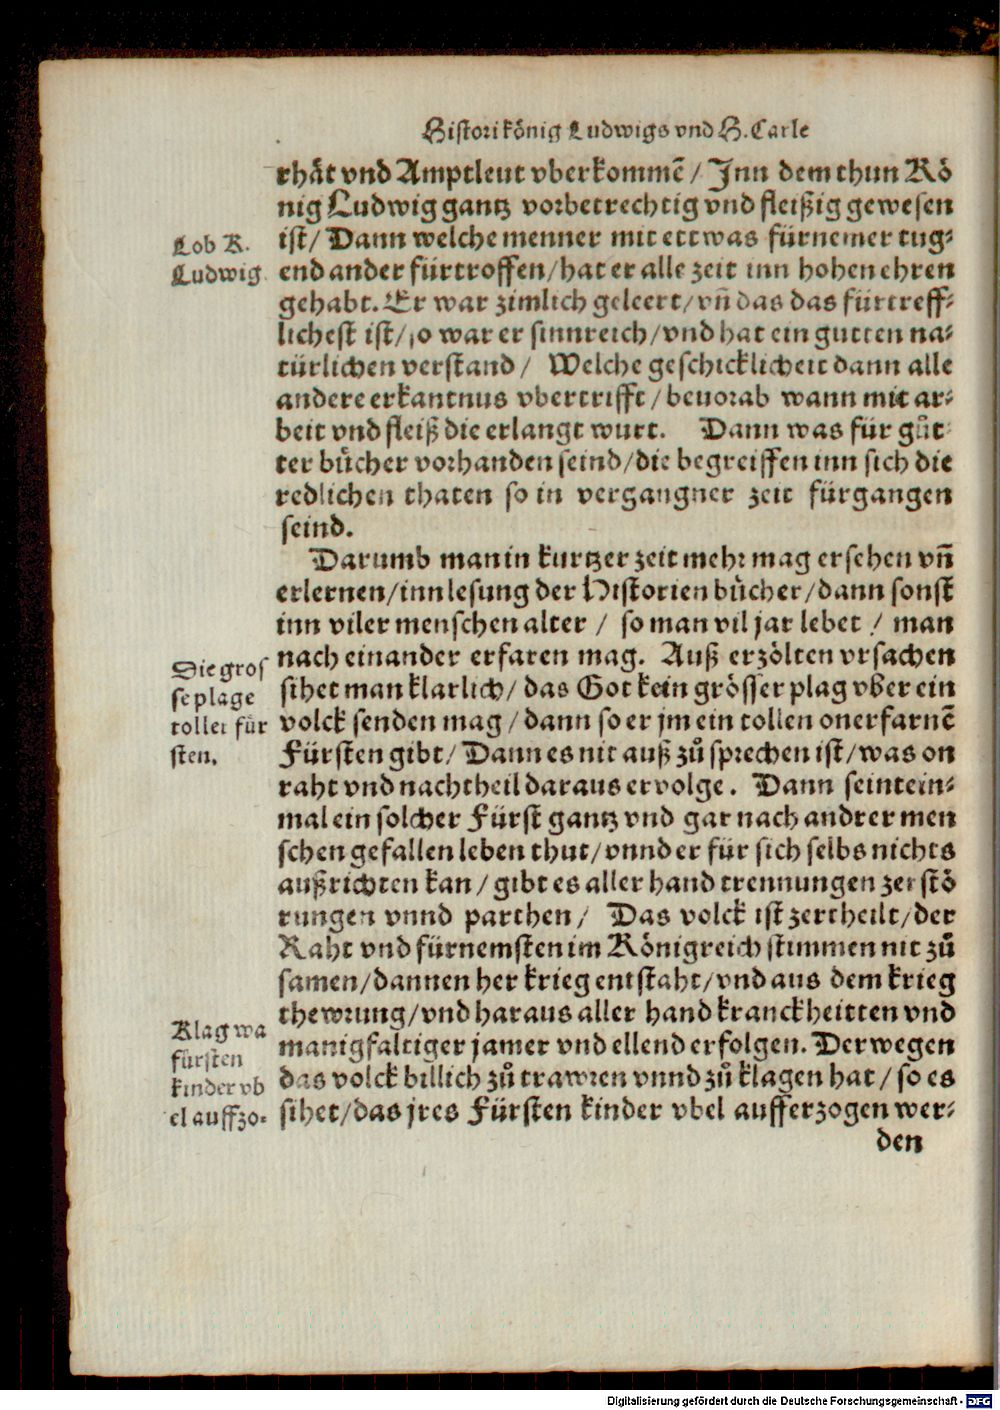 Histori könig Ludwigs vnd H. Carle
rhåt vnd Amptleut vberkommẽ / Jnn dem thun Kö
nig Ludwig gantz vorbetrechtig vnd fleißig gewesen
ist / Dann welche menner mit ettwas fürnemer tug-
end ander fürtroffen / hat er alle zeit inn hohen ehren
gehabt. Er war zimlich geleert / vñ das das fürtreff-
lichest ist / so war er sinnreich / vnd hat ein gutten na-
türlichen verstand / Welche geschicklicheit dann alle
andere erkantnus vbertrifft / beuorab wann mit ar-
beit vnd fleiß die erlangt wurt. Dann was für gůt-
ter bůcher vorhanden seind / die begreiffen inn sich die
redlichen thaten so in vergangner zeit fürgangen
seind.
Lob K.
Ludwig
Darumb man in kurtzer zeit mehr mag ersehen vñ
erlernen / inn lesung der Historien bůcher / dann sonst
inn viler menschen alter / so man vil jar lebet / man
nach einander erfaren mag. Auß erzölten vrsachen
sihet man klarlich / das Got kein grösser plag vber ein
volck senden mag / dann so er jm ein tollen onerfarnẽ
Fürsten gibt / Dann es nit auß zů sprechen ist / was on
raht vnd nachtheil daraus ervolge. Dann seintein-
mal ein solcher Fürst gantz vnd gar nach andrer men
schen gefallen leben thut / vnnd er für sich selbs nichts
außrichten kan / gibt es aller hand trennungen zerstö
rungen vnnd parthen / Das volck ist zertheilt / der
Raht vnd fürnemsten im Königreich stimmen nit zů
samen / dannen her krieg entstaht / vnd aus dem krieg
thewrung / vnd haraus aller hand kranckheitten vnd
manigfaltiger jamer vnd ellend erfolgen. Derwegen
das volck billich zů trawren vnnd zů klagen hat / so es
sihet / das jres Fürsten kinder vbel aufferzogen wer-
den
Die gros
se plage
toller für
sten.
Klag wa
fürsten
kinder vb
el auffzo-
Digitalisierung gefördert durch die Deutsche Forschungsgemeinschaft - DFG